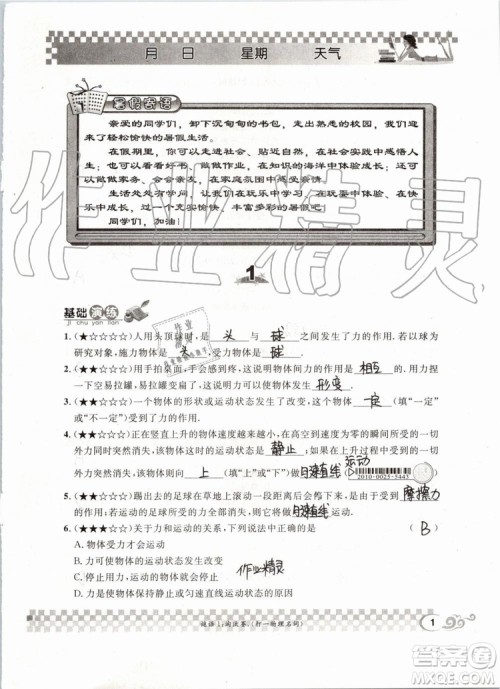 月 日 星期 天气
暑假寄语
亲爱的同学们，卸下沉甸甸的书包，走出熟悉的校园，我们又将
迎来轻松愉快的暑假生活。
在假期里，我们可以走出去，贴近大自然，在社会实践中感悟人
生，也可以看看好书，做做作业，在知识的海洋中体验成长，还可以
做做家务，会会亲友，在家庭氛围中感受爱情！
生活处处有学习，让我们在玩乐中学习，在玩耍中体验，在快
乐中成长，过一个充实愉快、丰富多彩的暑假吧！
同学们，加油！
1
基础演练
ji chu yan lian
1.(★☆☆☆☆)人用头顶球时，是 头 与 球 之间发生了力的作用。若以球为
研究对象，施力物体是 头 ，受力物体是 球 。
2.(★★☆☆☆)用手拍桌面，手也感到疼，这说明物体间力的作用是 相互 的；
用手捏一下空易拉罐，易拉罐变扁了，这说明力可以使物体发生 形变 。
3.(★★☆☆☆)一个物体的形状或运动状态发生了改变，这个物体 一定 (填“一定”
或“不一定”)受到了力的作用。
4.(★★☆☆☆)正在竖直上升的物体速度越来越小，在高空到速度为零的瞬间所受的一切
外力同时突然消失，则该物体最终的状态是 静止 ；若在上升过程中所受的一切外
力同时突然消失，则该物体将向 上 (填“上”或“下”)做 匀速直线运动
2010-0023-5443
5.(★★☆☆☆)踢出去的足球在草地上滚动一段时间后会停下来，是因为受到了 摩擦力
的作用，如果足球所受的力全部消失，足球将做 匀速直线 运动。
6.(★★☆☆☆)关于力和运动的关系，下列说法中正确的是 ( B )
A.物体受力才会运动
B.力可使物体的运动状态发生改变
C.停止用力，运动的物体就会停止
D.力是使物体保持静止或匀速直线运动状态的原因
作业精灵
谜语1：淘汰赛。(打一物理名词)
1